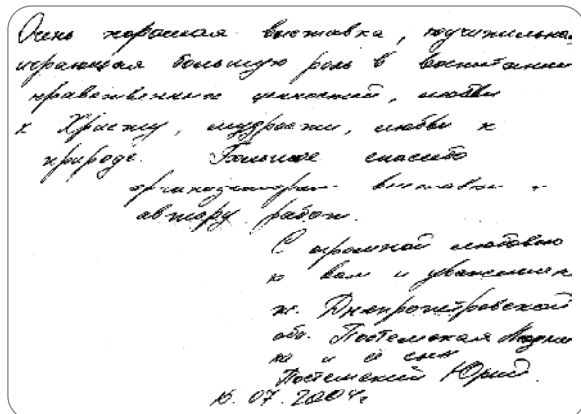 Очень хорошая выставка, поучительная
играющая большую роль в воспитании
нравственных ценностей, любви
к Христу, мудрости, любви к
природе. Большое спасибо
организаторам выставки и
автору работ.
С огромной любовью
к вам и уважением
ж. Днепропетровской
обл. Постемская
на и её сын
Постемский Юрий.
15.07.2004г